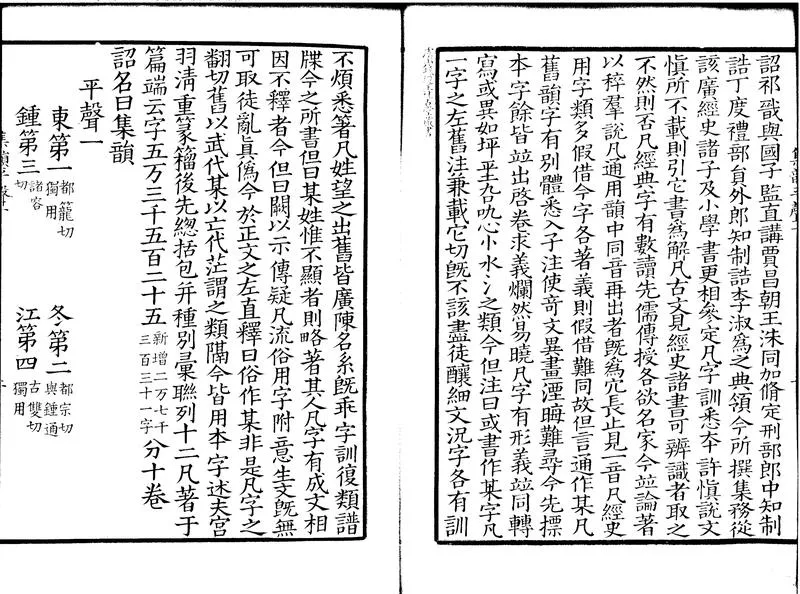 詔祁戩與國子監直講賈昌朝王洙同加脩定刑部郎中知制
誥丁度禮部員外郎知制誥李淑爲之典領今所撰集務從
該廣經史諸子及小學書更相參定凡字訓悉本許愼說文
愼所不載則引它書爲解凡古文見經史諸書可辨識者取之
不然則否凡經典字有數讀先儒傳授各欲名家今竝論著
以稡羣說凡通用韻中同音再出者旣爲宂長止見一音凡經史
用字類多假借今字各著義則假借難同故但言通作某凡
舊韻字有別體悉入子注使奇文異畫湮晦難尋今先標
本字餘皆竝出啓卷求義爛然易曉凡字有形義竝同轉
寫或異如坪𡊰叴叺心忄水氵之類今但注曰或書作某字凡
一字之左舊注兼載它切旣不該盡徒釀細文況字各有訓
不煩悉箸凡姓望之出舊皆廣陳名系旣乖字訓復類譜
牒今之所書但曰某姓惟不顯者則略著其人凡字有成文相
因不釋者今但曰闕以示傳疑凡流俗用字附意生文旣無
可取徒亂眞僞今於正文之左直釋曰俗作某非是凡字之
翻切舊以武代某以亾代茫謂之類隔今皆用本字述夫宮
羽淸重篆籀後先總括包幷種別彙聯列十二凡著于
篇端云字五万三千五百二十五新增二万七千三百三十一字分十卷
詔名曰集韻
平聲一
東第一都籠切獨用
冬第二都宗切與鍾通
鍾第三諸容切
江第四古雙切獨用